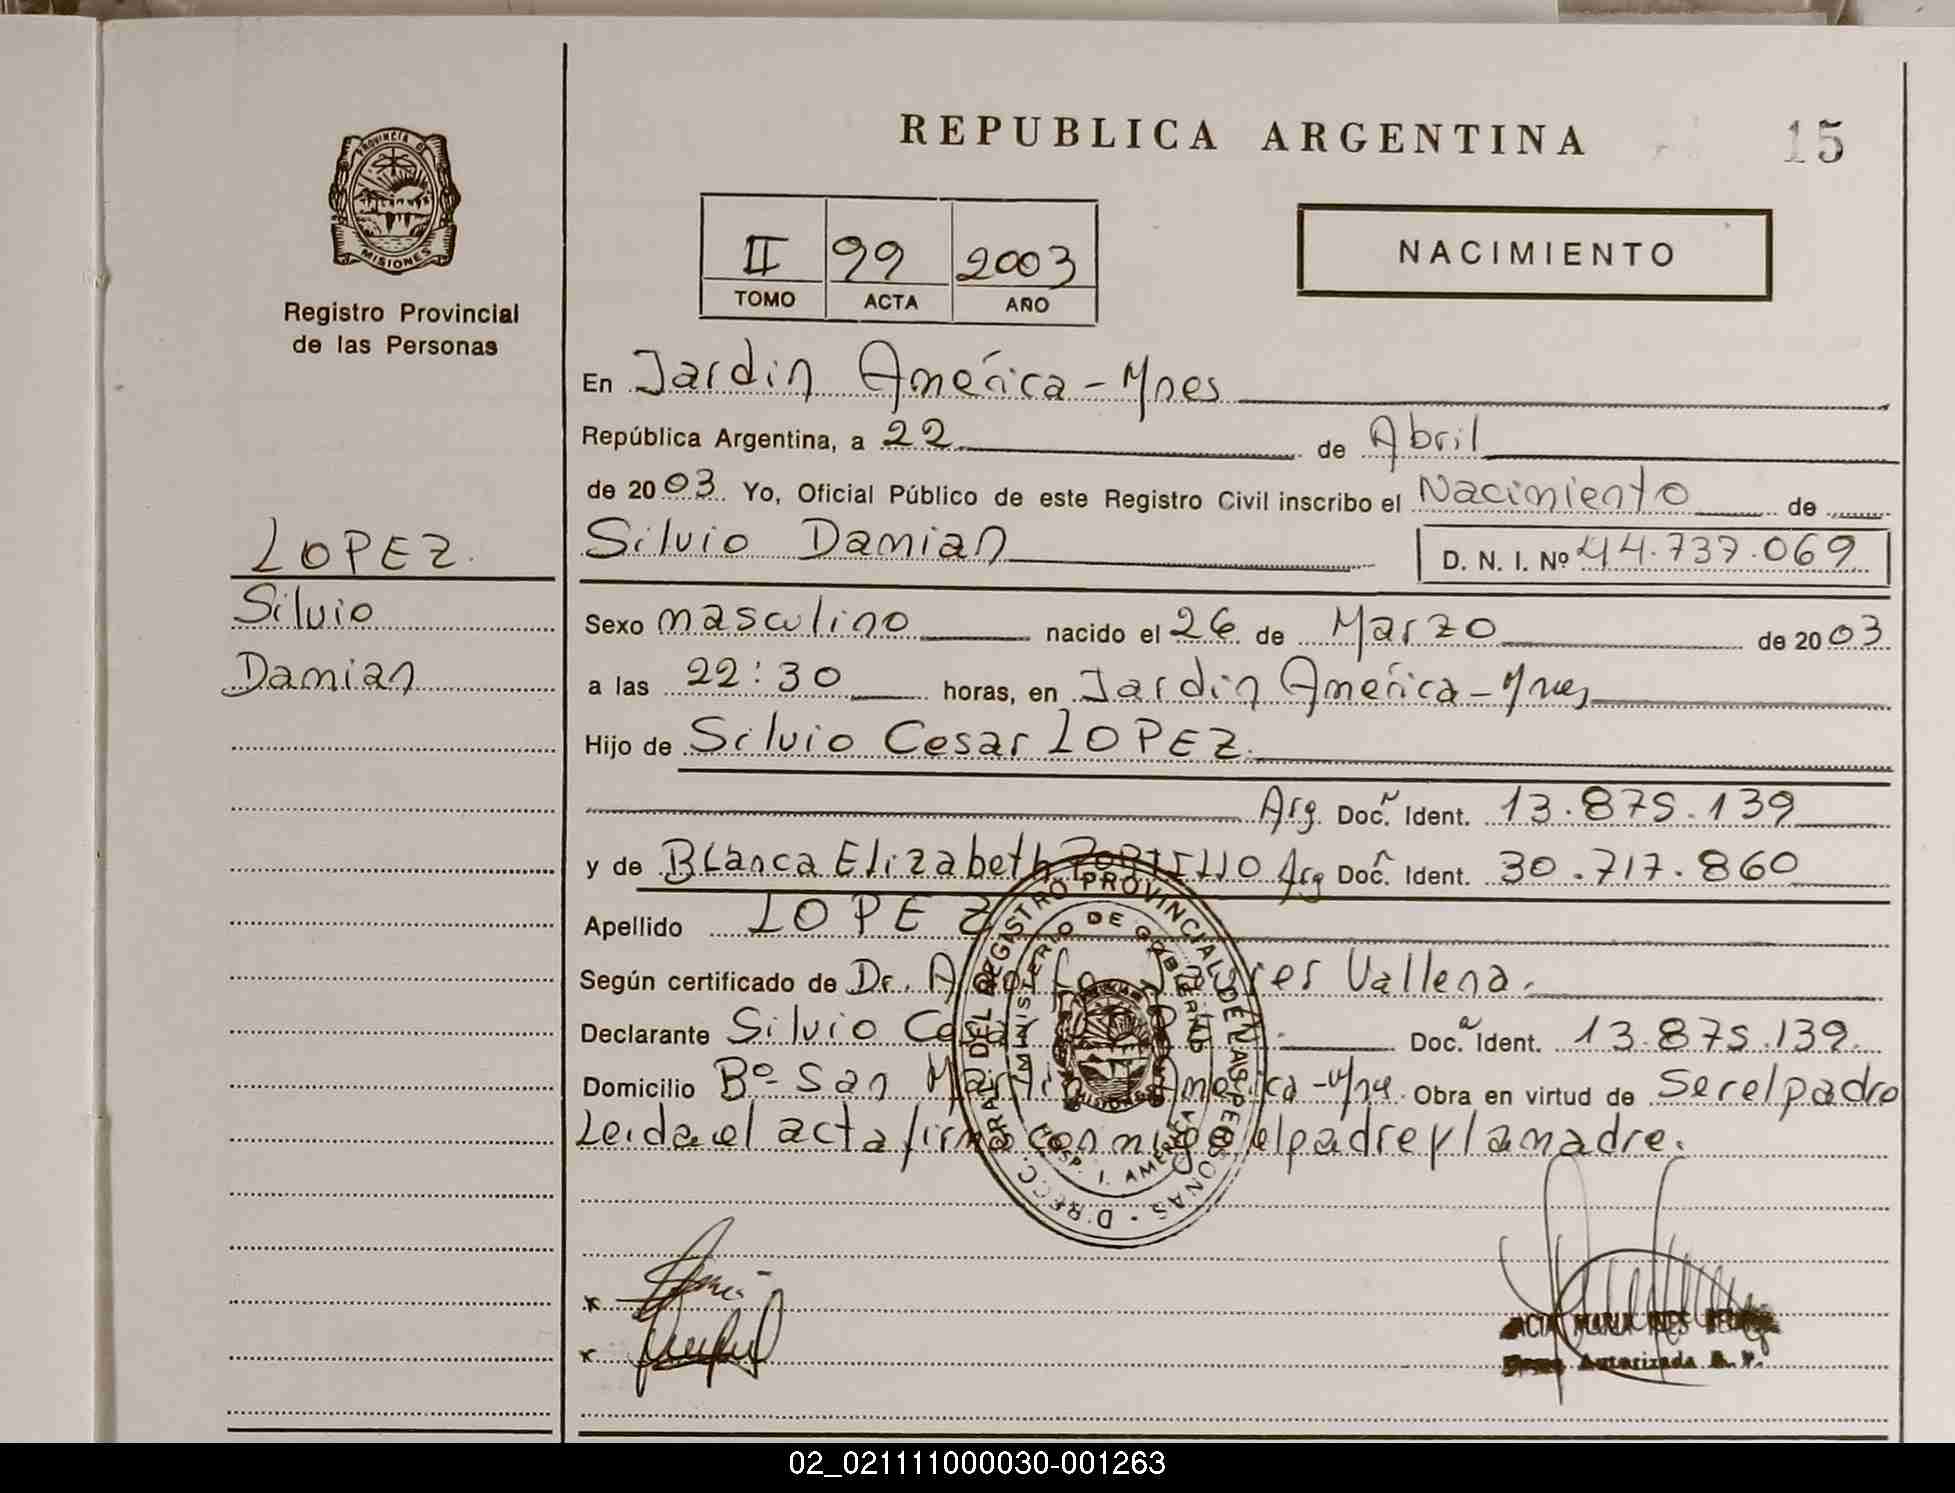 REPUBLICA ARGENTINA
15
PROVINCIA D
MISIONES
Registro Provincial
de las Personas
II 99 2003
TOMO ACTA AÑO
NACIMIENTO
En Jardin América-Mnes
República Argentina, a 22 de Abril
de 2003 Yo, Oficial Público de este Registro Civil inscribo el Nacimiento de
LOPEZ.
Silvio
Damian
Silvio Damian D. N. I. Nº 44.737.069
Sexo masculino nacido el 26 de Marzo de 2003
a las 22:30 horas, en Jardin América-Mnes
Hijo de Silvio Cesar LOPEZ.
Arg. Doc. Ident. 13.875.139
y de Blanca Elizabeth PORTILLO Arg Doc. Ident. 30.717.860
Apellido LOPEZ
Según certificado de Dr. Vallena.
Declarante Silvio Cesar Doc. Ident. 13.875.139
Domicilio Bº San Martin America-Mnes. Obra en virtud de Ser el padre
Leida el acta firma conmigo el padre y la madre.
DIRECC. GRAL. DEL REGISTRO PROVINCIAL DE LAS PERSONAS
MINISTERIO DE GOBIERNO
HOSP. J. AMERICA
MISIONES
x
x
MARIA INES
Firma Autorizada R. P.
02_021111000030-001263